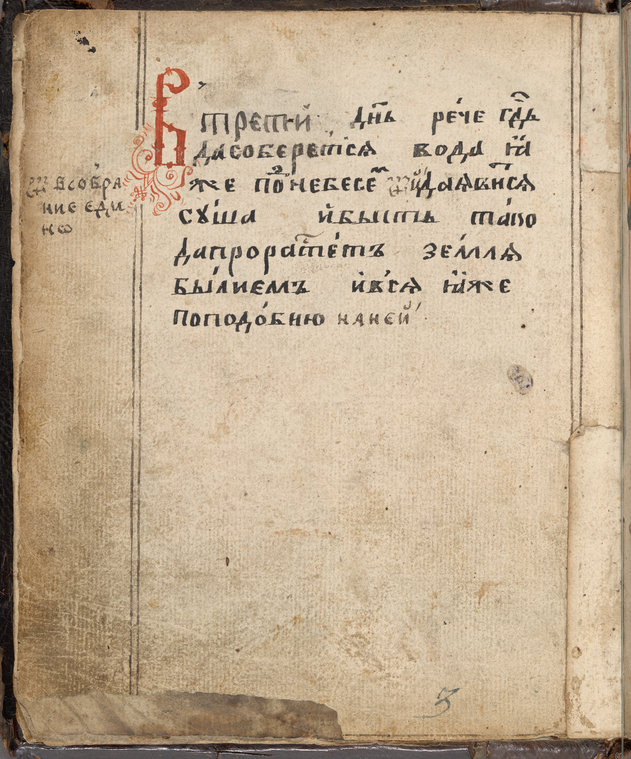 Втрети́й дн҃ь рече гд҇ь
дасоберетсѧ вода ꙗ҆́
же поⷣнебесеⷨ и҆даꙗвитсѧ
суша и҆бысть тако
дапрорастетъ землѧ
быліемъ и҆всѧ ꙗ҆же
поподобию наней
всобра
ние еди
но
3